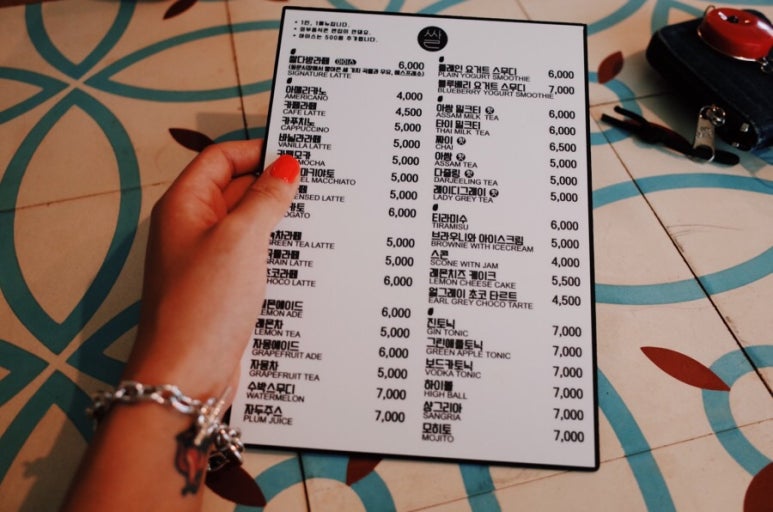 • 1인, 1메뉴입니다.
• 외부음식은 반입이 안돼요.
• 아이스는 500원 추가됩니다.
쌀
쌀다방라떼 아이스 6,000
SIGNATURE LATTE
아메리카노 4,000
AMERICANO
카페라떼 4,500
CAFE LATTE
카푸치노 5,000
CAPPUCCINO
바닐라라떼 5,000
VANILLA LATTE
5,000
MOCHA
5,000
MACCHIATO
5,000
LATTE
6,000
5,000
GREEN TEA LATTE
5,000
GRAIN LATTE
초코라떼 6,000
CHOCO LATTE
레몬에이드 6,000
LEMON ADE
레몬차 5,000
LEMON TEA
자몽에이드 6,000
GRAPEFRUIT ADE
자몽차 5,000
GRAPEFRUIT TEA
수박스무디 7,000
WATERMELON
자두주스 7,000
PLUM JUICE
플레인 요거트 스무디 6,000
PLAIN YOGURT SMOOTHIE
블루베리 요거트 스무디 7,000
BLUEBERRY YOGURT SMOOTHIE
아쌈 밀크티 6,000
ASSAM MILK TEA
타이 밀크티 6,000
THAI MILK TEA
짜이 6,500
CHAI
아쌈 5,000
ASSAM TEA
다즐링 5,000
DARJEELING TEA
레이디그레이 5,000
LADY GREY TEA
티라미수 6,000
TIRAMISU
브라우니와 아이스크림 5,000
BROWNIE WITH ICECREAM
스콘 4,000
SCONE WITN JAM
레몬치즈 케이크 5,500
LEMON CHEESE CAKE
얼그레이 초코 타르트 4,500
EARL GREY CHOCO TARTE
진토닉 7,000
GIN TONIC
그린애플토닉 7,000
GREEN APPLE TONIC
보드카토닉 7,000
VODKA TONIC
하이볼 7,000
HIGH BALL
샹그리아 7,000
SANGRIA
모히토 7,000
MOJITO